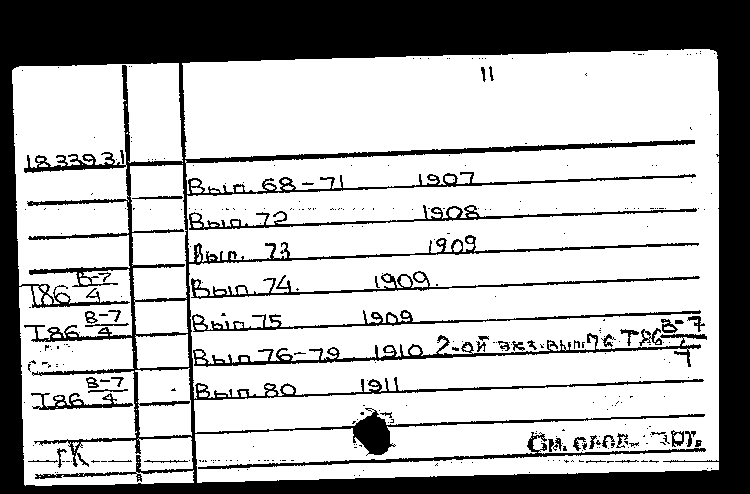 11
18.339.3.1
Вып. 68-71 1907
Вып. 72 1908
Вып. 73 1909
Т86 В-7/4 Вып. 74. 1909.
Т86 В-7/4 Вып. 75 1909
Вып. 76-79 1910 2-ой экз. вып. 76 Т86 В-7/7
Т86 В-7/4 Вып. 80 1911
гК
См. след.